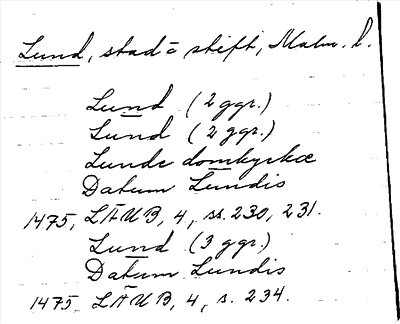 Lund, stad o stift, Malm. l.
Lund (2 ggr.)
Lund (2 ggr.)
Lunde domkyrkæ
Datum Lundis
1475, LÄUB, 4, ss. 230, 231.
Lund (3 ggr.)
Datum Lundis
1475. LÄUB, 4, s. 234.